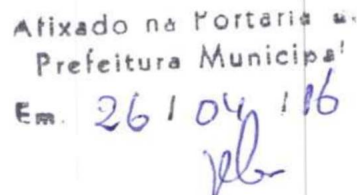 Afixado na Portaria
Prefeitura Municipal
Em. 26 / 04 / 16